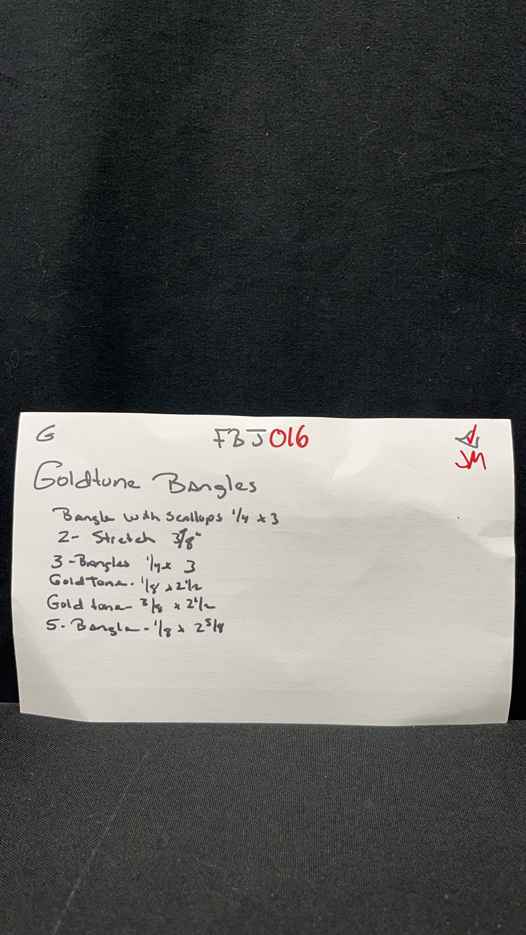 G FBJ016
JM
Goldtone Bangles
Bangle with Scallops 1/4 x 3
2- Stretch 3/8"
3-Bangles 1/4 x 3
Goldtone- 1/8 x 2 1/2
Gold tone- 3/8 x 2 1/2
5- Bangle- 1/8 x 2 5/8